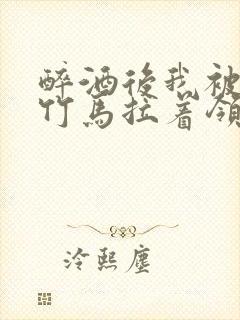 醉酒後我被
竹馬拉着領
泠熙塵